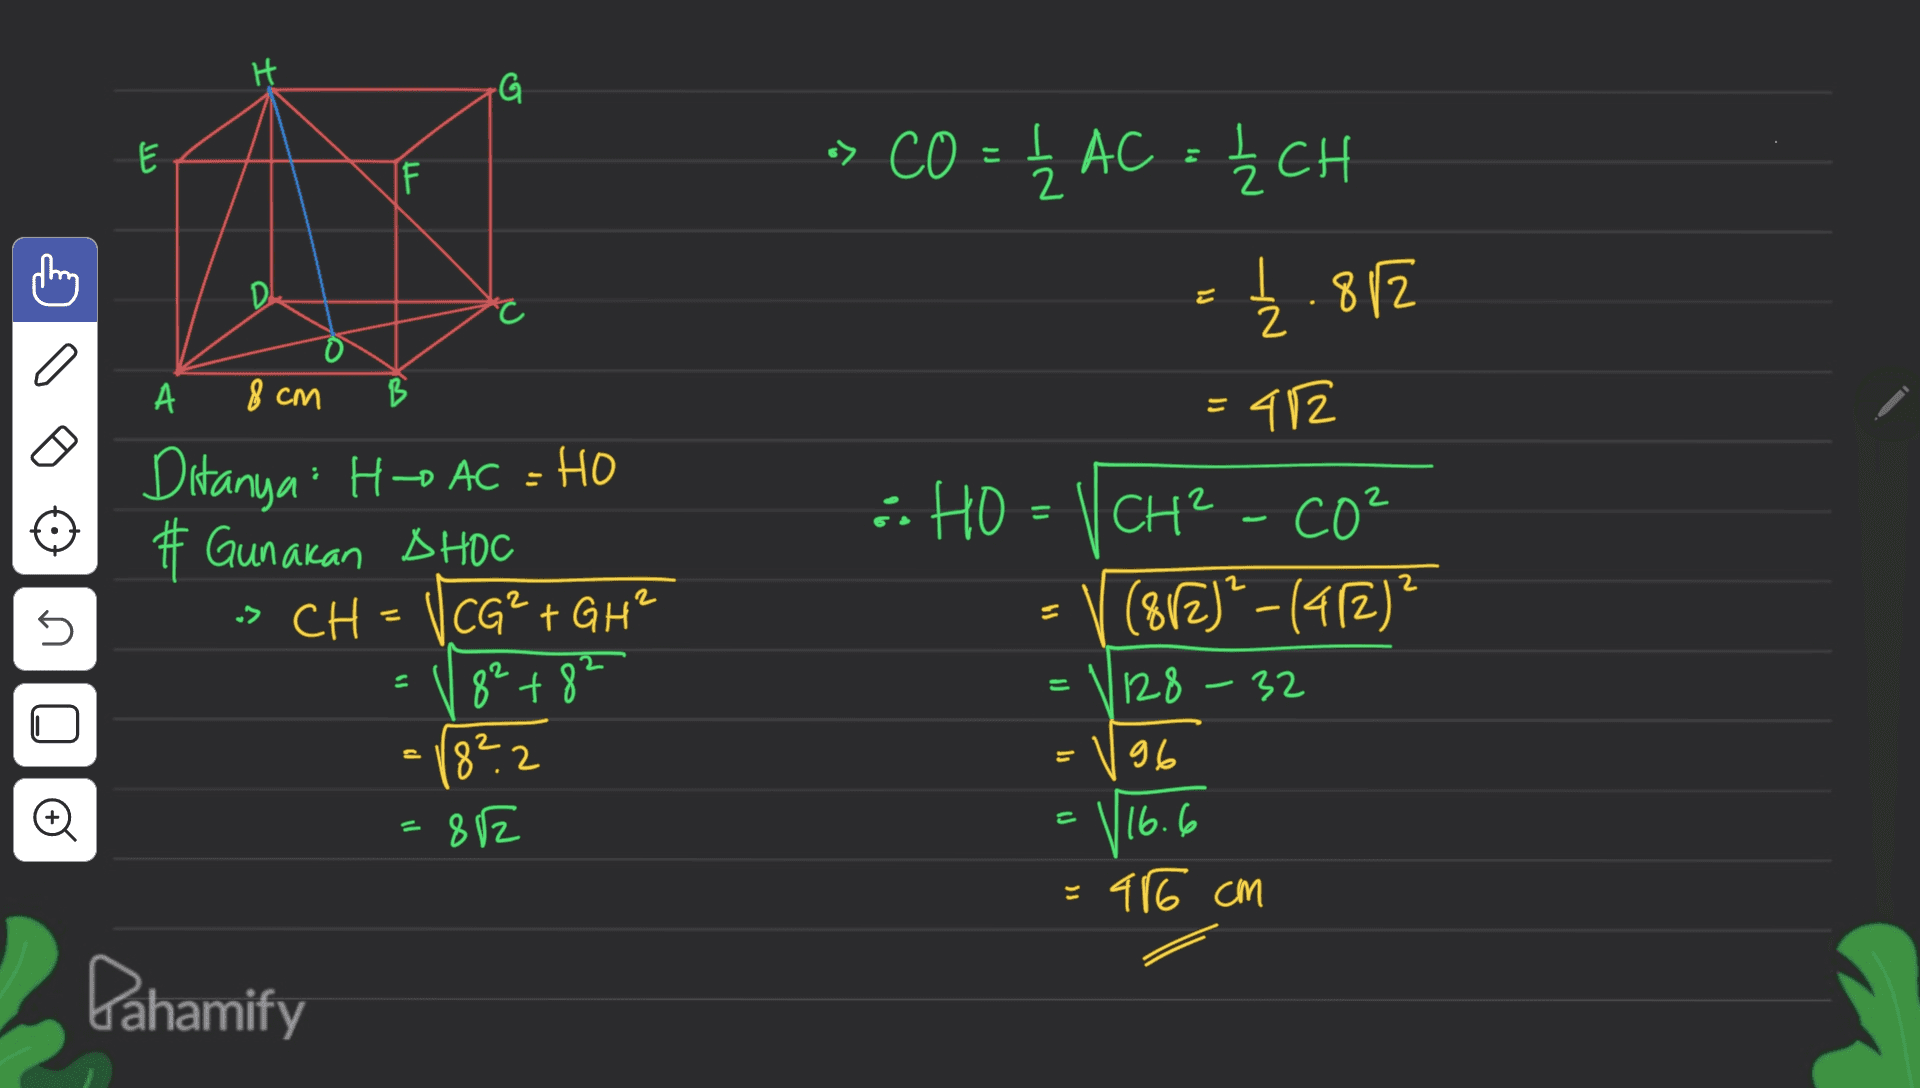 H
G
E
F
D
C
O
A
8 cm
B
Ditanya : H → AC = HO
# Gunakan ΔHOC
•> CH = √CG² + GH²
= √8² + 8²
= √8².2
= 8√2
•> CO = 1/2 AC = 1/2 CH
= 1/2 . 8√2
= 4√2
∴ HO = √CH² - CO²
= √(8√2)² - (4√2)²
= √128 - 32
= √96
= √16.6
= 4√6 cm
Pahamify